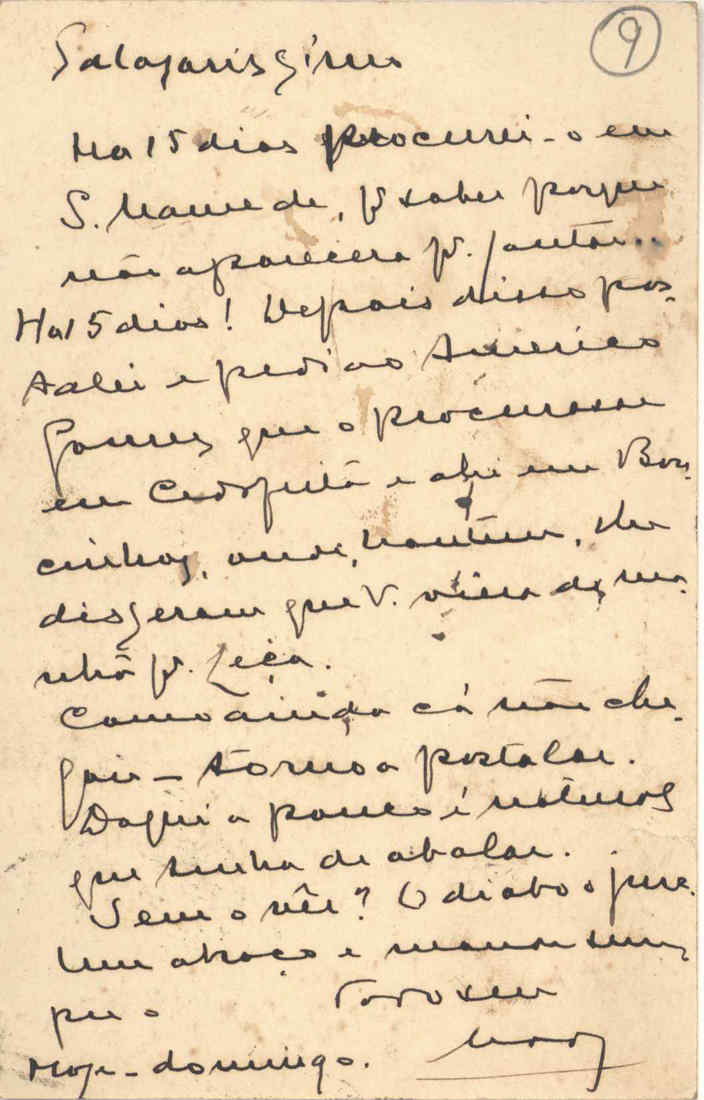 9
Salazaríssimo
Ha 15 dias procurei-o em
S. Mamede, pª saber porque
não aparecera pª. jantar..
Ha 15 dias! Depois disso pos-
talei e pedi ao Americo
Gomes que o procurasse
em Cedofeita e ahi em Bou-
cinhas, onde, hontem, lhe
disseram que V. viera de, ma-
nhã pª. Leça.
Como ainda cá não che-
gou - torno a postalar.
Daqui a pouco é natural
que tenha de abalar.
Sem o vêr? O diabo o jure.
Um abraço e mande sem-
pre o Todo seu
Hoje - domingo.